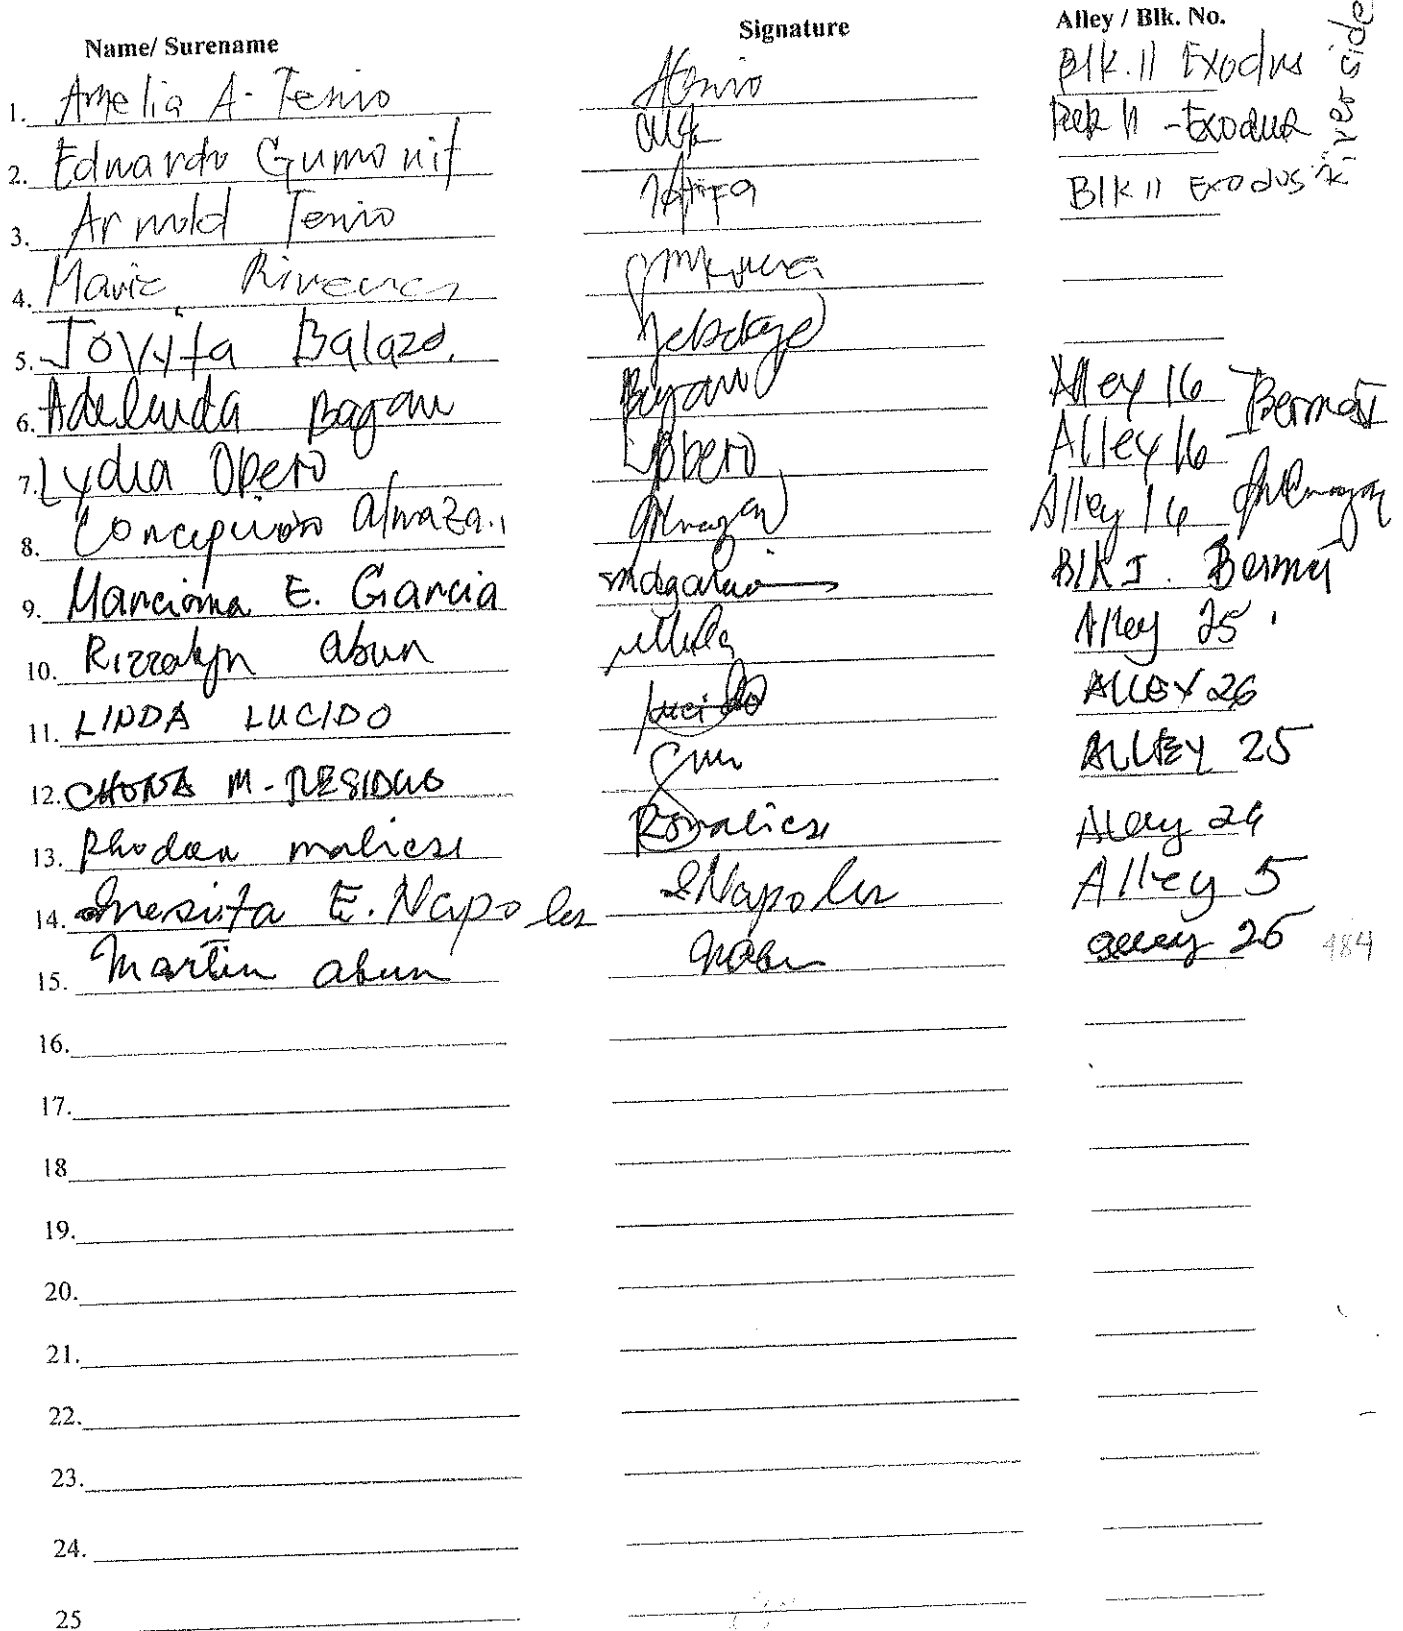 Name/ Surename Signature Alley / Blk. No.
1. Amelia A. Tenio Atenio Blk. 11 Exodus
2. Eduardo Gumonit Blk 11 - Exodus
3. Arnold Tenio Blk 11 Exodus
River side
4. Marie
5. Jovita Balazo.
6. Adelaida Bagani Bagani Alley 16 Bermai
7. Lydia Obero LObero Alley 16
8. Concepcion Almazan Almazan Alley 16 Almazan
9. Marciana E. Garcia megarcia Blk I. Bermai
10. Rizzalyn abun Alley 25
11. LINDA LUCIDO Lucido ALLEY 26
12. CHONA M. RESIDUO ALLEY 25
13. Rhodora malicsi Rmalicsi Alley 24
14. Inesita E. Napoles INapoles Alley 5
15. Martin abun Mabun alley 25 484
16.
17.
18
19.
20.
21.
22.
23.
24.
25